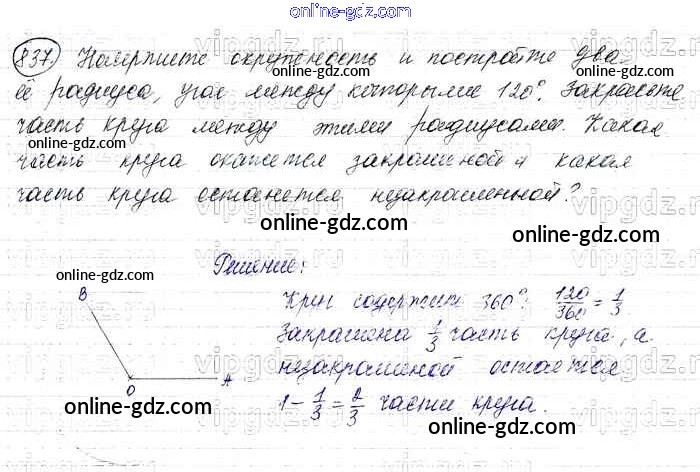 online-gdz.com
837. Начертите окружность и постройте два
её радиуса, угол между которыми 120°. Закрасьте
часть круга между этими радиусами. Какая
часть круга окажется закрашенной и какая
часть круга останется незакрашенной?
online-gdz.com
online-gdz.com
online-gdz.com
Решение:
online-gdz.com
B
O
A
Круг содержит 360°. 120/360 = 1/3.
Закрашена 1/3 часть круга, а
незакрашенной остаётся
1 - 1/3 = 2/3 части круга.
online-gdz.com
online-gdz.com
online-gdz.com
online-gdz.com